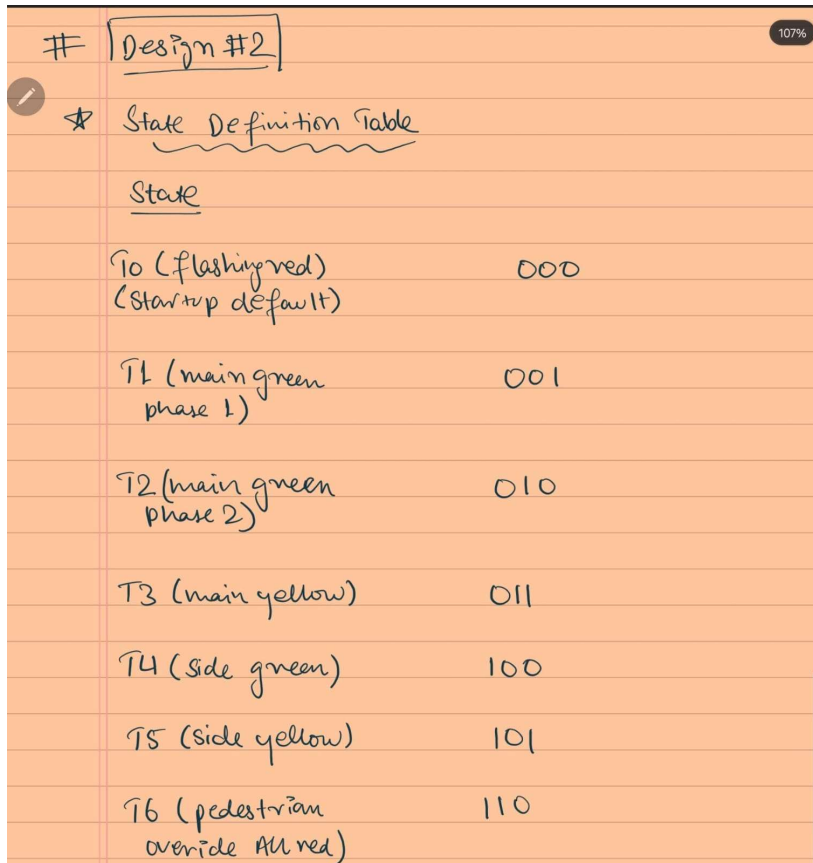 # Design #2
107%
☆ State Definition Table
State
T0 (flashing red) 000
(Startup default)
T1 (main green 001
phase 1)
T2 (main green 010
phase 2)
T3 (main yellow) 011
T4 (side green) 100
T5 (side yellow) 101
T6 (pedestrian 110
overide All red)